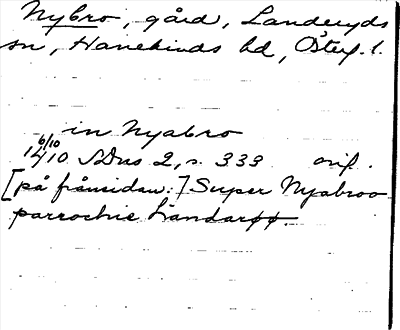 Nybro, gård, Landeryds
sn, Hanekinds hd, Österg. l.
in Nyabro
6/10
1410 SDns 2, s. 339 orig.
[på frånsidan:] Super Nyabroo
parrochie Landarøø.